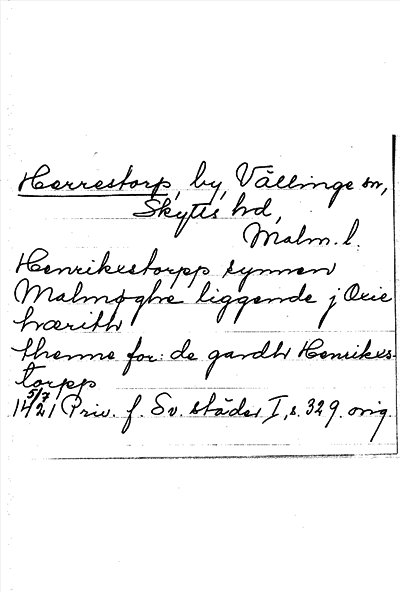 Herrestorp, by, Vällinge sn,
Skytts hd,
Malm. l.
Henrikxstorpp synnen
Malmøghe liggende j Oxie
hærith
thenne for: de gardh Henrikxs-
torpp
14 5/7 21 Priv. f. Sv. städer I, s. 329. orig.